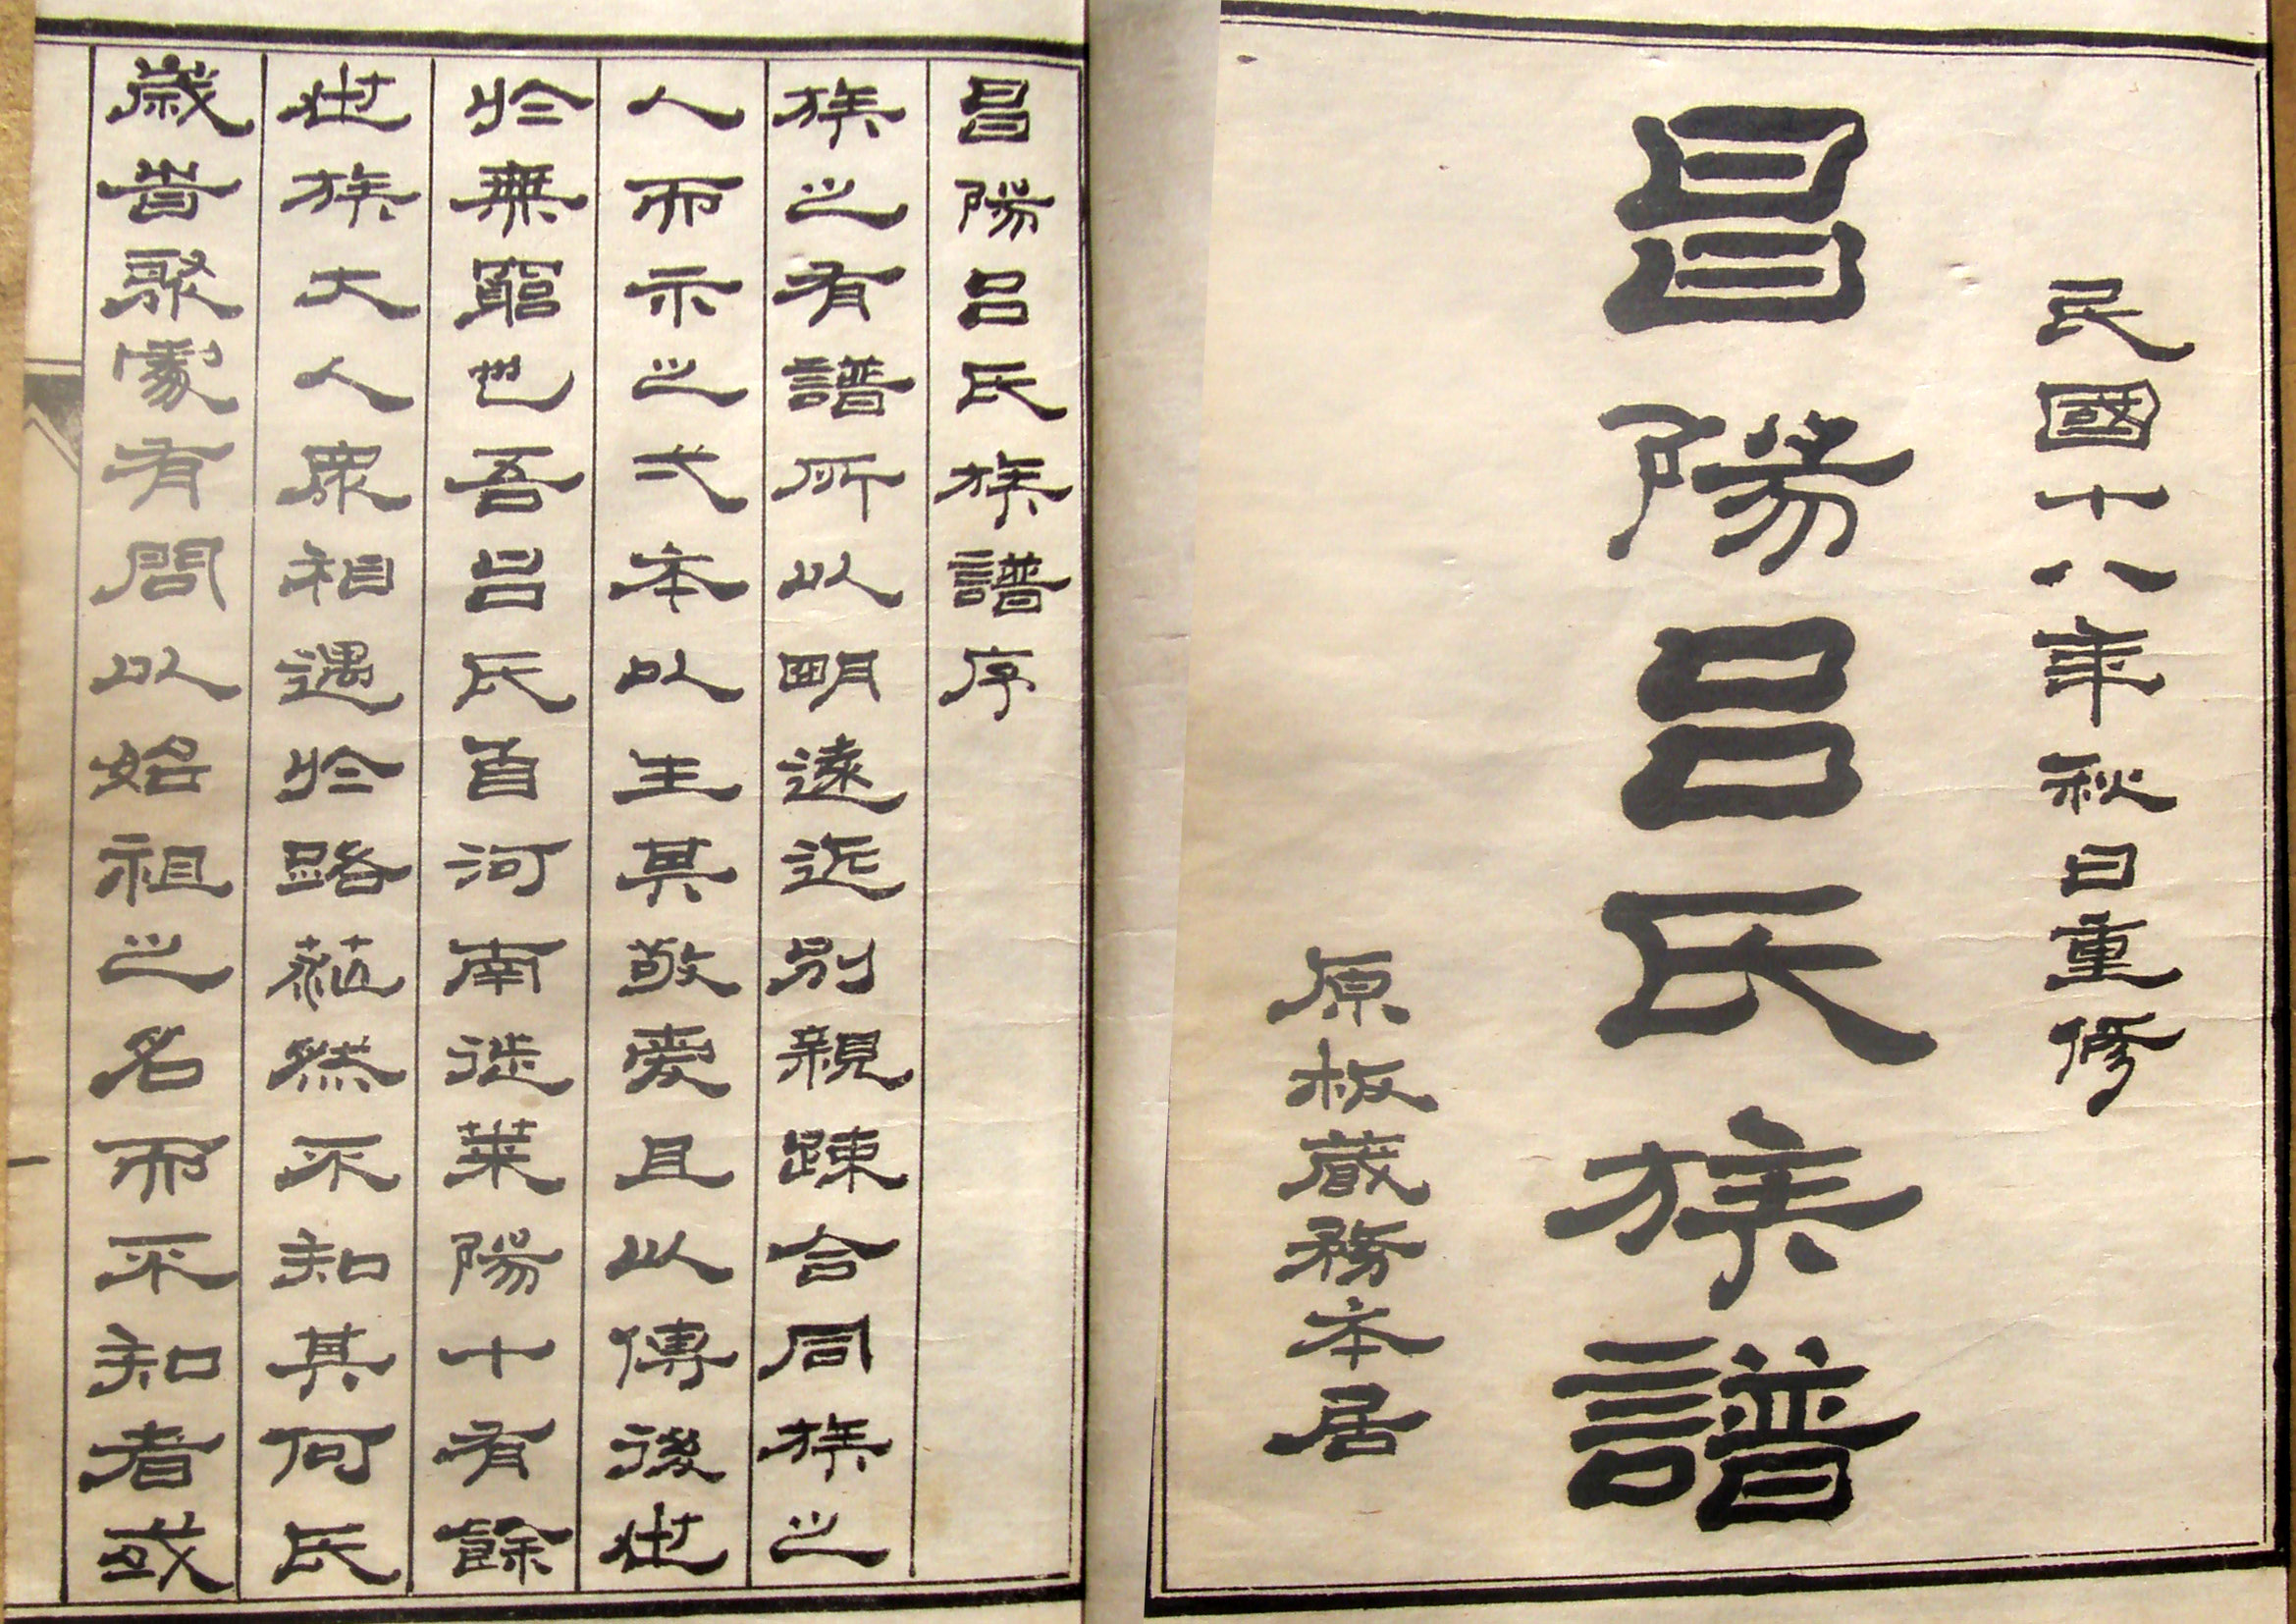 民國十八年秋日重修
昌陽呂氏族譜
原板藏務本居
昌陽呂氏族譜序
族之有譜所以明遠近別親踈合同族之
人而示之弌本以生其敬愛且以傳後世
於無窮也吾呂氏自河南徙萊陽十有餘
世族大人眾相遇於路茫然不知其何氏
歲旹聚處有問以始祖之名而不知者或
一